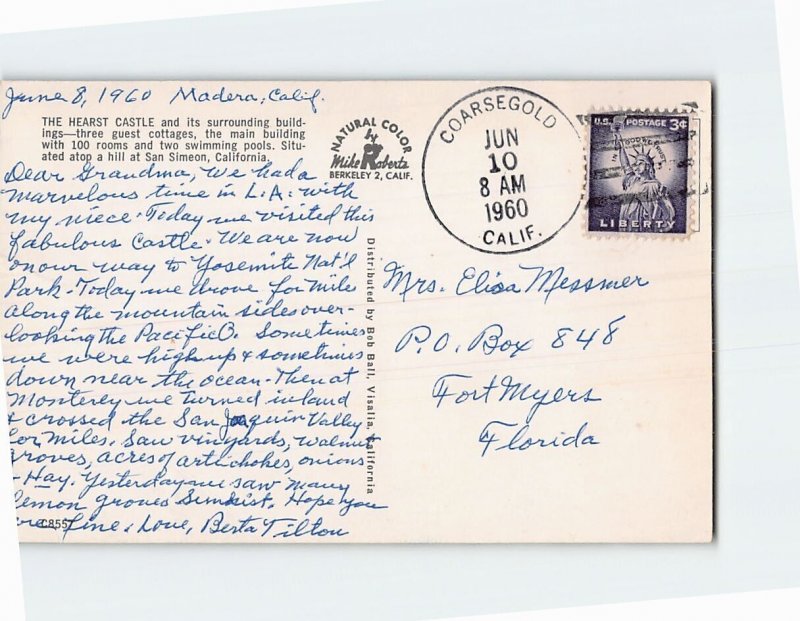 June 8, 1960 Madera, Calif.
THE HEARST CASTLE and its surrounding build-
ings—three guest cottages, the main building
with 100 rooms and two swimming pools. Situ-
ated atop a hill at San Simeon, California.
NATURAL COLOR
by
Mike Roberts
BERKELEY 2, CALIF.
Dear Grandma, We had a
marvelous time in L.A. with
my niece. Today we visited this
fabulous Castle. We are now
on our way to Yosemite Nat'l
Park. Today we drove for miles
along the mountain sides over-
looking the Pacific O. Sometimes
we were high up & sometimes
down near the ocean. Then at
Monterey we turned inland
& crossed the San Joaquin Valley
for miles. Saw vinyards, walnut
groves, acres of artichokes, onions
+ Hay. Yesterday we saw many
lemon groves Sunkist. Hope you
are fine. Love, Berta Tilton
C8557
Distributed by Bob Ball, Visalia, California
COARSEGOLD
JUN
10
8 AM
1960
CALIF.
U.S. POSTAGE 3¢
IN GOD WE TRUST
LIBERTY
Mrs. Elisa Messmer
P.O. Box 848
Fort Myers
Florida